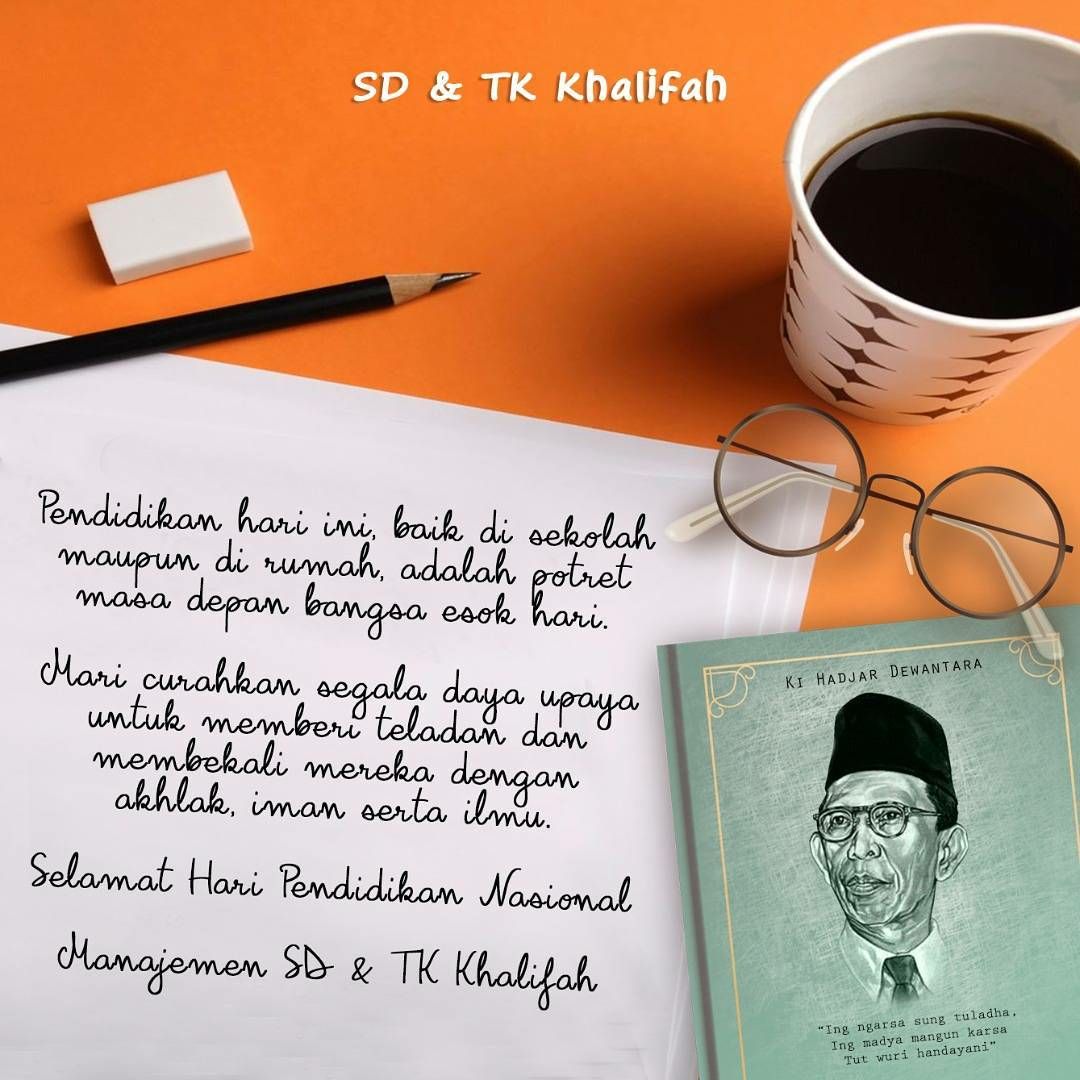 SD & TK Khalifah
Pendidikan hari ini, baik di sekolah
maupun di rumah, adalah potret
masa depan bangsa esok hari.
Mari curahkan segala daya upaya
untuk memberi teladan dan
membekali mereka dengan
akhlak, iman serta ilmu.
Selamat Hari Pendidikan Nasional
Manajemen SD & TK Khalifah
KI HADJAR DEWANTARA
"Ing ngarsa sung tuladha,
Ing madya mangun karsa
Tut wuri handayani"